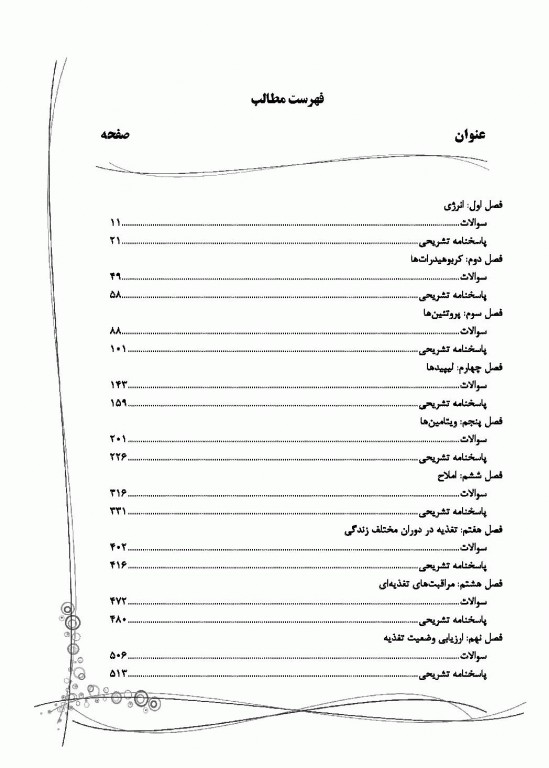 فهرست مطالب
عنوان صفحه
فصل اول: انرژی
سوالات ۱۱
پاسخنامه تشریحی ۲۱
فصل دوم: کربوهیدرات‌ها
سوالات ۴۹
پاسخنامه تشریحی ۵۸
فصل سوم: پروتئین‌ها
سوالات ۸۸
پاسخنامه تشریحی ۱۰۱
فصل چهارم: لیپیدها
سوالات ۱۴۳
پاسخنامه تشریحی ۱۵۹
فصل پنجم: ویتامین‌ها
سوالات ۲۰۱
پاسخنامه تشریحی ۲۲۶
فصل ششم: املاح
سوالات ۳۱۶
پاسخنامه تشریحی ۳۳۱
فصل هفتم: تغذیه در دوران مختلف زندگی
سوالات ۴۰۲
پاسخنامه تشریحی ۴۱۶
فصل هشتم: مراقبت‌های تغذیه‌ای
سوالات ۴۷۲
پاسخنامه تشریحی ۴۸۰
فصل نهم: ارزیابی وضعیت تغذیه
سوالات ۵۰۶
پاسخنامه تشریحی ۵۱۳